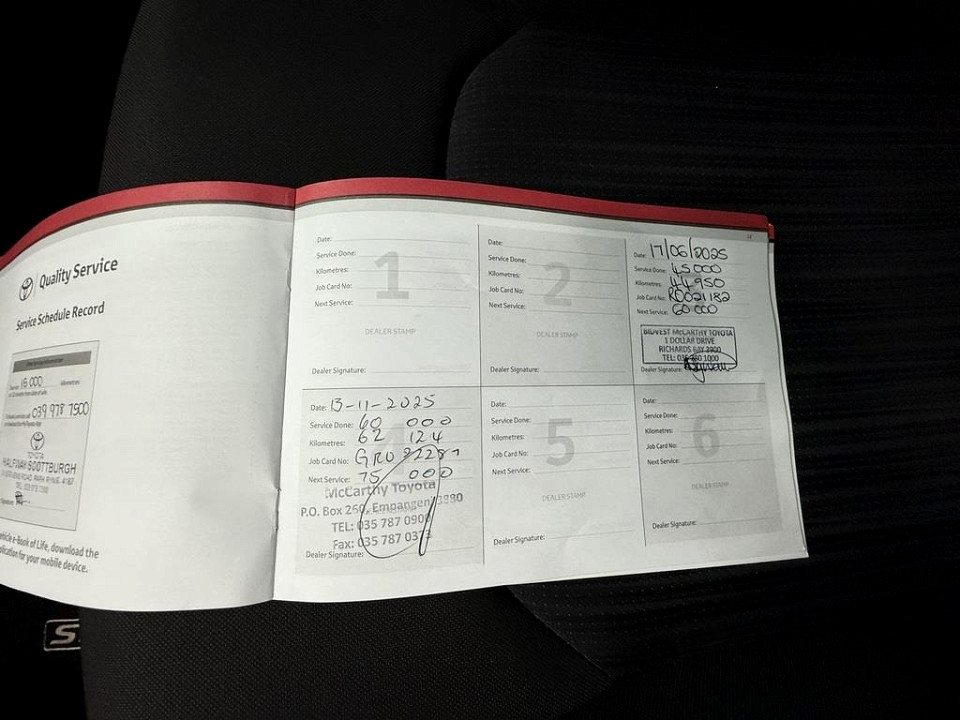 Quality Service
Service Schedule Record
15 000
Kilometres
039 978 7500
TOYOTA
HALFWAY SCOTTBURGH
Signature:
vehicle e-Book of Life, download the
application for your mobile device.
Date:
Service Done:
Kilometres:
Job Card No:
Next Service:
1
DEALER STAMP
Dealer Signature:
Date:
Service Done:
Kilometres:
Job Card No:
Next Service:
2
DEALER STAMP
Dealer Signature:
Date: 17/06/2025
Service Done: 45000
Kilometres: 44950
Job Card No: R0021182
Next Service: 60000
BIDVEST McCARTHY TOYOTA
1 DOLLAR DRIVE
RICHARDS BAY 3900
TEL: 035 780 1000
Dealer Signature:
Date: 13-11-2025
Service Done: 60 000
Kilometres: 62 124
Job Card No:
Next Service: 75 000
4
McCarthy Toyota
P.O. Box 260, Empangeni 3880
TEL: 035 787 0900
Fax: 035 787 0373
Dealer Signature:
Date:
Service Done:
Kilometres:
Job Card No:
Next Service:
5
DEALER STAMP
Dealer Signature:
Date:
Service Done:
Kilometres:
Job Card No:
Next Service:
6
DEALER STAMP
Dealer Signature: